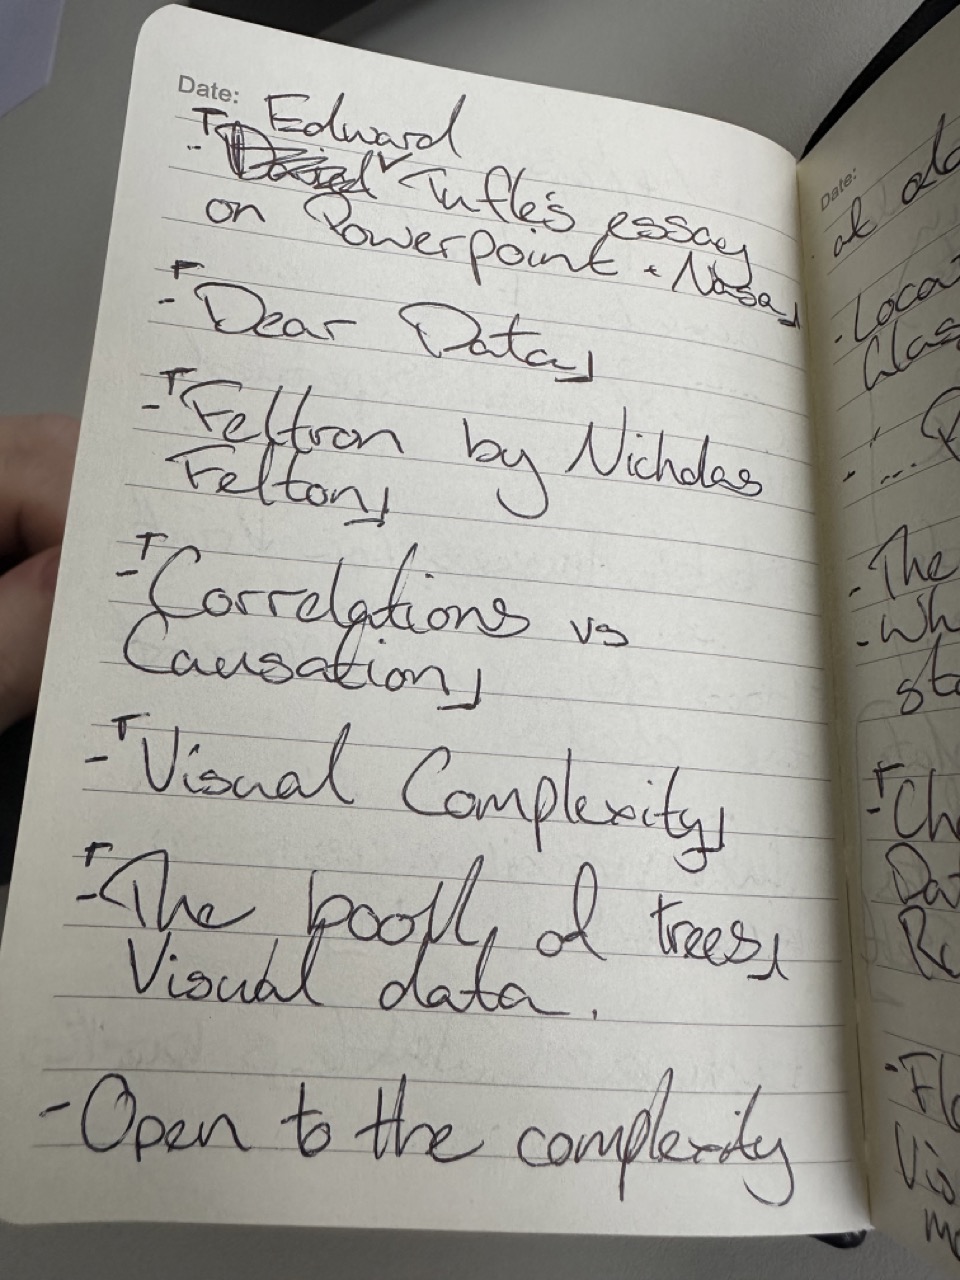 Date:
Edward
- Tufte's essay
on Powerpoint + Nasa
- Dear Data
- Feltron by Nicholas
Felton
- Correlations vs
Causation
- Visual Complexity
- The book of trees
Visual data.
- Open to the complexity
Date:
at
- Locat
Clas
...
- The
- Wh
sta
- Ch
Dat
- Flo
Vis
mo